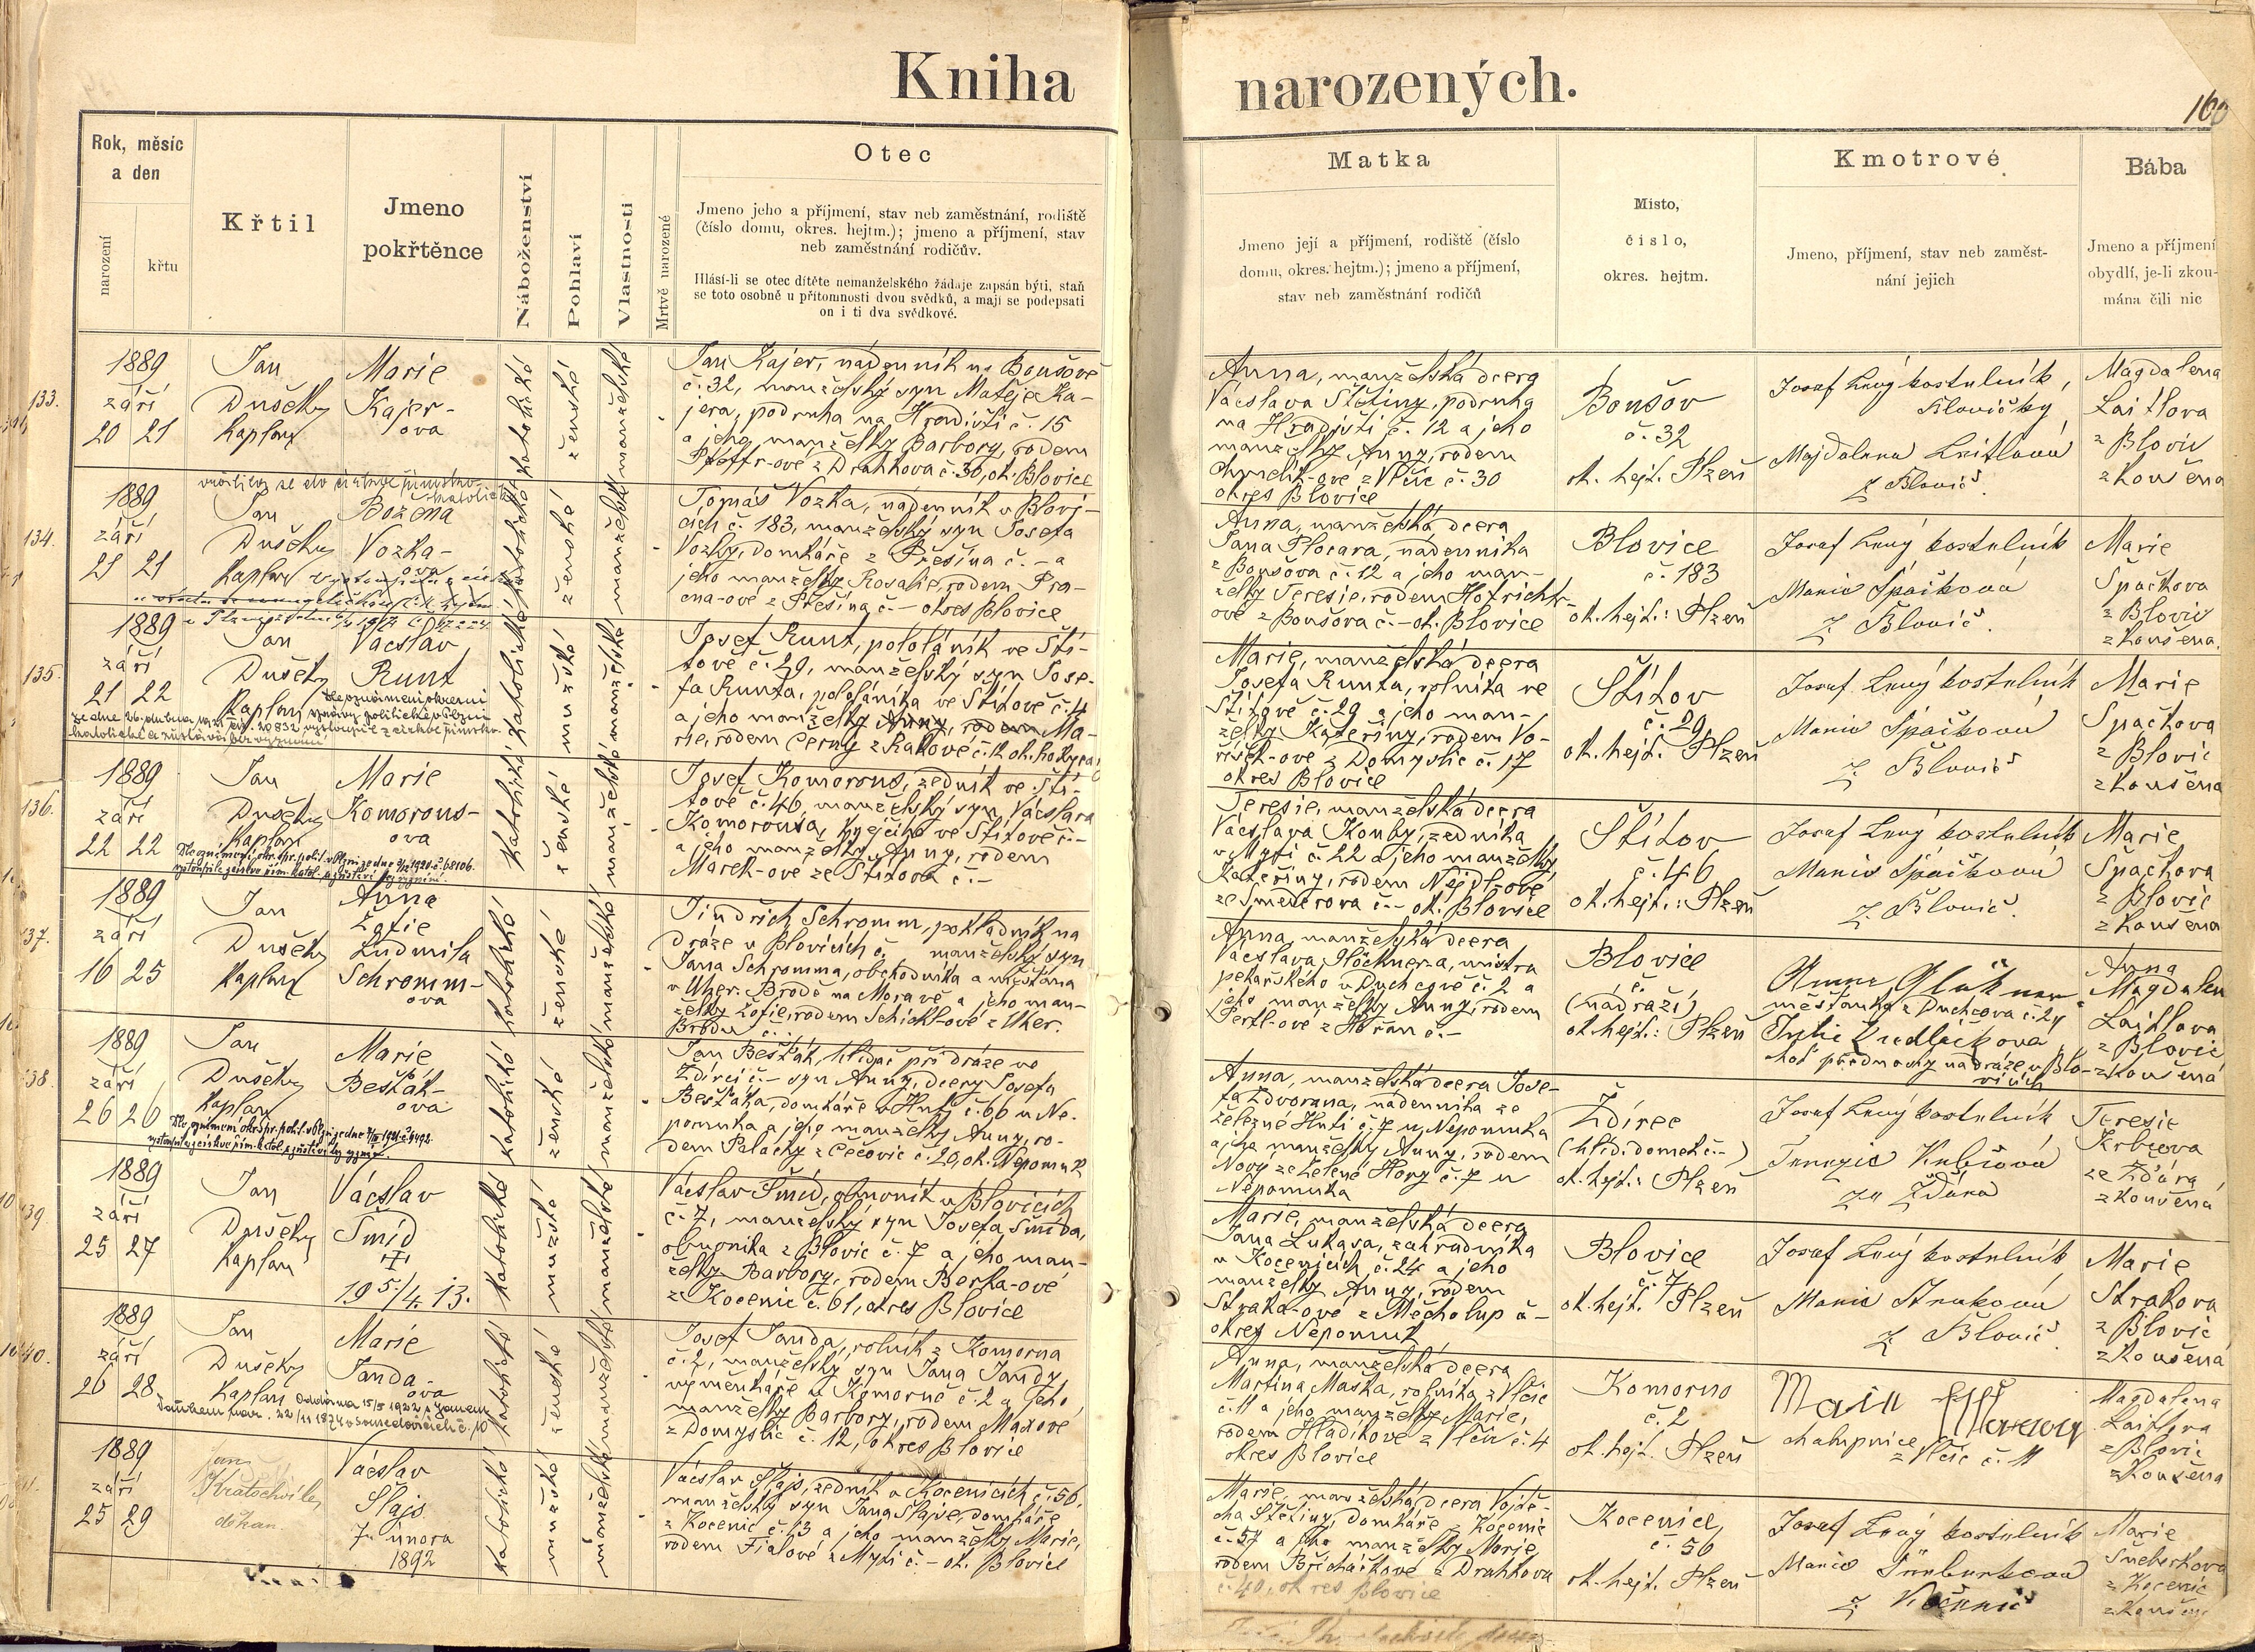 Kniha narozených.
160
Rok, měsíc
a den
narození
křtu
Křtil
Jmeno
pokřtěnce
Náboženství
Pohlaví
Vlastnosti
Mrtvě narozené
Otec
Jmeno jeho a příjmení, stav neb zaměstnání, rodiště
(číslo domu, okres. hejtm.); jmeno a příjmení, stav
neb zaměstnání rodičův.
Hlásí-li se otec dítěte nemanželského žádaje zapsán býti, staň
se toto osobně u přítomnosti dvou svědků, a mají se podepsati
on i ti dva svědkové.
Matka
Jmeno její a příjmení, rodiště (číslo
domu, okres. hejtm.); jmeno a příjmení,
stav neb zaměstnání rodičů
Místo,
číslo,
okres. hejtm.
Kmotrové
Jmeno, příjmení, stav neb zaměst-
nání jejich
Bába
Jmeno a příjmení
obydlí, je-li zkou-
mána čili nic
133.
1889
září
20 21
Jan
Dušek
Kaplan
Marie
Kajer-
ova
katolické
ženské
manželské
Jan Kajer, nádenník na Boušově
č. 32, manželský syn Matěje Ka-
jera, podruha na Hradišti č. 15
a jeho manželky Barbory, rodem
z Drahkova č. 30, ok. Blovice
Anna, manželská dcera
Václava Štětiny, podruha
na Hradišti č. 12 a jeho
manželky Anny, rodem
z Vlčic č. 30
okres Blovice
Boušov
č. 32
ok. hejt. Plzeň
Josef Levý kostelník,
Blovičky
Majdalena Laitlová
z Blovic
Magdalena
Laitlova
z Blovic
zkoušena
134.
1889
září
21 21
Jan
Dušek
Kaplan
Božena
Vozka-
ova
katolické
ženské
manželské
Tomáš Vozka, nádenník v Blovi-
cích č. 183, manželský syn Josefa
Vozky, domkáře z Přešína č. – a
jeho manželky Rosalie, rodem
z Přešína č. – okres Blovice
Anna, manželská dcera
Jana Plocara, nádenníka
z Boušova č. 12 a jeho man-
želky Teresie, rodem
ové z Boušova č. – ok. Blovice
Blovice
č. 183
ok. hejt.: Plzeň
Josef Levý kostelník
Marie Špačková
z Blovic.
Marie
Špačkova
z Blovic
zkoušena.
135.
1889
září
21 22
Jan
Dušek
Kaplan
Václav
Runt
katolické
mužské
manželské
Josef Runt, pololáník ve Ští-
tově č. 29, manželský syn Jose-
fa Runta, pololáníka ve Štítově č. 4
a jeho manželky Anny, rodem Ma-
rie, rodem Černý z Rakové č. 12 ok. Rokycany
Marie, manželská dcera
Josefa Runta, rolníka ve
Štítově č. 29 a jeho man-
želky Kateřiny, rodem Vo-
říšek-ové z Domyslic č. 17
okres Blovice
Štítov
č. 29
ok. hejt. Plzeň
Josef Levý kostelník
Marie Špačková
z Blovic
Marie
Špačkova
z Blovic
zkoušena
136.
1889
září
22 22
Jan
Dušek
Kaplan
Marie
Komorous-
ova
katolické
ženské
manželské
Josef Komorous, zedník ve Ští-
tově č. 46, manželský syn Václava
Komorousa, krejčího ve Štítově č. –
a jeho manželky Anny, rodem
Marek-ové ze Štítova č. –
Teresie, manželská dcera
Václava Kouby, zedníka
v Mýti č. 22 a jeho manželky
Kateřiny, rodem Nejdlové
ze Smederova č. – ok. Blovice
Štítov
č. 46
ok. hejt.: Plzeň
Josef Levý kostelník
Marie Špačková
z Blovic.
Marie
Špačkova
z Blovic
zkoušena
137.
1889
září
16 25
Jan
Dušek
Kaplan
Anna
Žofie
Ludmila
Schromm-
ova
katolické
ženské
manželské
Jindřich Schromm, pokladník na
dráze v Blovicích č. manželský syn
Jana Schromma, obchodníka a měšťana
v Uher. Brodě na Moravě a jeho man-
želky Žofie, rodem Schickl-ové z Uher.
Brodu č. –
Anna, manželská dcera
Václava Glöcknera, mistra
pekařského v Duchcově č. 2 a
jeho manželky Anny, rodem
Pertl-ové z Hořan č. –
Blovice
č.
(nádraží)
ok. hejt.: Plzeň
měšťanka z Duchcova č. 24
choť přednosty nádraže v Blo-
vicích
Anna
Magdalen
Laitlova
z Blovic
zkoušená
138.
1889
září
26 26
Jan
Dušek
Kaplan
Marie
Bešták-
ova
katolické
ženské
manželské
Jan Bešták, hlídač při dráze ve
Ždírci č. – syn Anny, dcery Josefa
Beštáka, domkáře v Huti č. 66 u Ne-
pomuka a jeho manželky Anny, ro-
dem Palacky z Čečovic č. 20, ok. Nepomuk
Anna, manželská dcera Jose-
fa Zdvorana, nádenníka ze
železné Huti č. 7 u Nepomuka
a jeho manželky Anny, rodem
Nový ze Zelené Hory č. 7 u
Nepomuka
Ždírec
(hlíd. domek č. –)
ok. hejt.: Plzeň
Josef Levý kostelník
ze Ždára
Teresie
Krbcova
ze Ždára
zkoušená
139.
1889
září
25 27
Jan
Dušek
Kaplan
Václav
Šmíd
19 5/4. 13.
katolické
mužské
manželské
Václav Šmíd, obuvník v Blovicích
č. 7, manželský syn Josefa Šmída,
obuvníka z Blovic č. 7 a jeho man-
želky Barbory, rodem Berka-ové
z Kocenic č. 61, okres Blovice
Marie, manželská dcera
Jana Lukasa, zahradníka
v Kocenicích č. 24 a jeho
manželky Anny, rodem
Straka-ové z Měcholup č –
okres Nepomuk
Blovice
č. 7
ok. hejt. Plzeň
Josef Levý kostelník
Marie Straková
z Blovic
Marie
Strakova
z Blovic
zkoušená
140.
1889
září
26 28
Jan
Dušek
Kaplan
Marie
Janda-
ova
katolické
ženské
manželské
Josef Janda, rolník z Komorna
č. 2, manželský syn Jana Jandy,
výměnkáře v Komorně č. 2 a jeho
manželky Barbory, rodem Maxové
z Domyslic č. 12, okres Blovice
Anna, manželská dcera
Martina Maška, rolníka z Vlčic
č. 11 a jeho manželky Marie,
rodem Hladíkové z Vlčic č. 4
okres Blovice
Komorno
č. 2
ok. hejt. Plzeň
chalupnice
z Vlčic č. 11
Magdalena
Laitlova
z Blovic
zkoušena
1889
září
25 29
Jan
Kratochvile,
děkan.
Václav
Šlajs
7. února
1892
katolické
mužské
manželské
Václav Šlajs, zedník v Kocenicích č. 56,
manželský syn Jana Šlajse, domkáře
z Kocenic č. 13 a jeho manželky Marie,
rodem Fialové z Mýti č. – ok. Blovice
Marie, manželská dcera Vojtě-
cha Štětiny, domkáře z Kocenic
č. 57 a jeho manželky Marie,
rodem Břicháčkové z Drahkova
č. 40, okres Blovice
Kocenice,
č. 56
ok. hejt. Plzeň
Josef Levý kostelník
Marie
z Kocenic
zkoušená